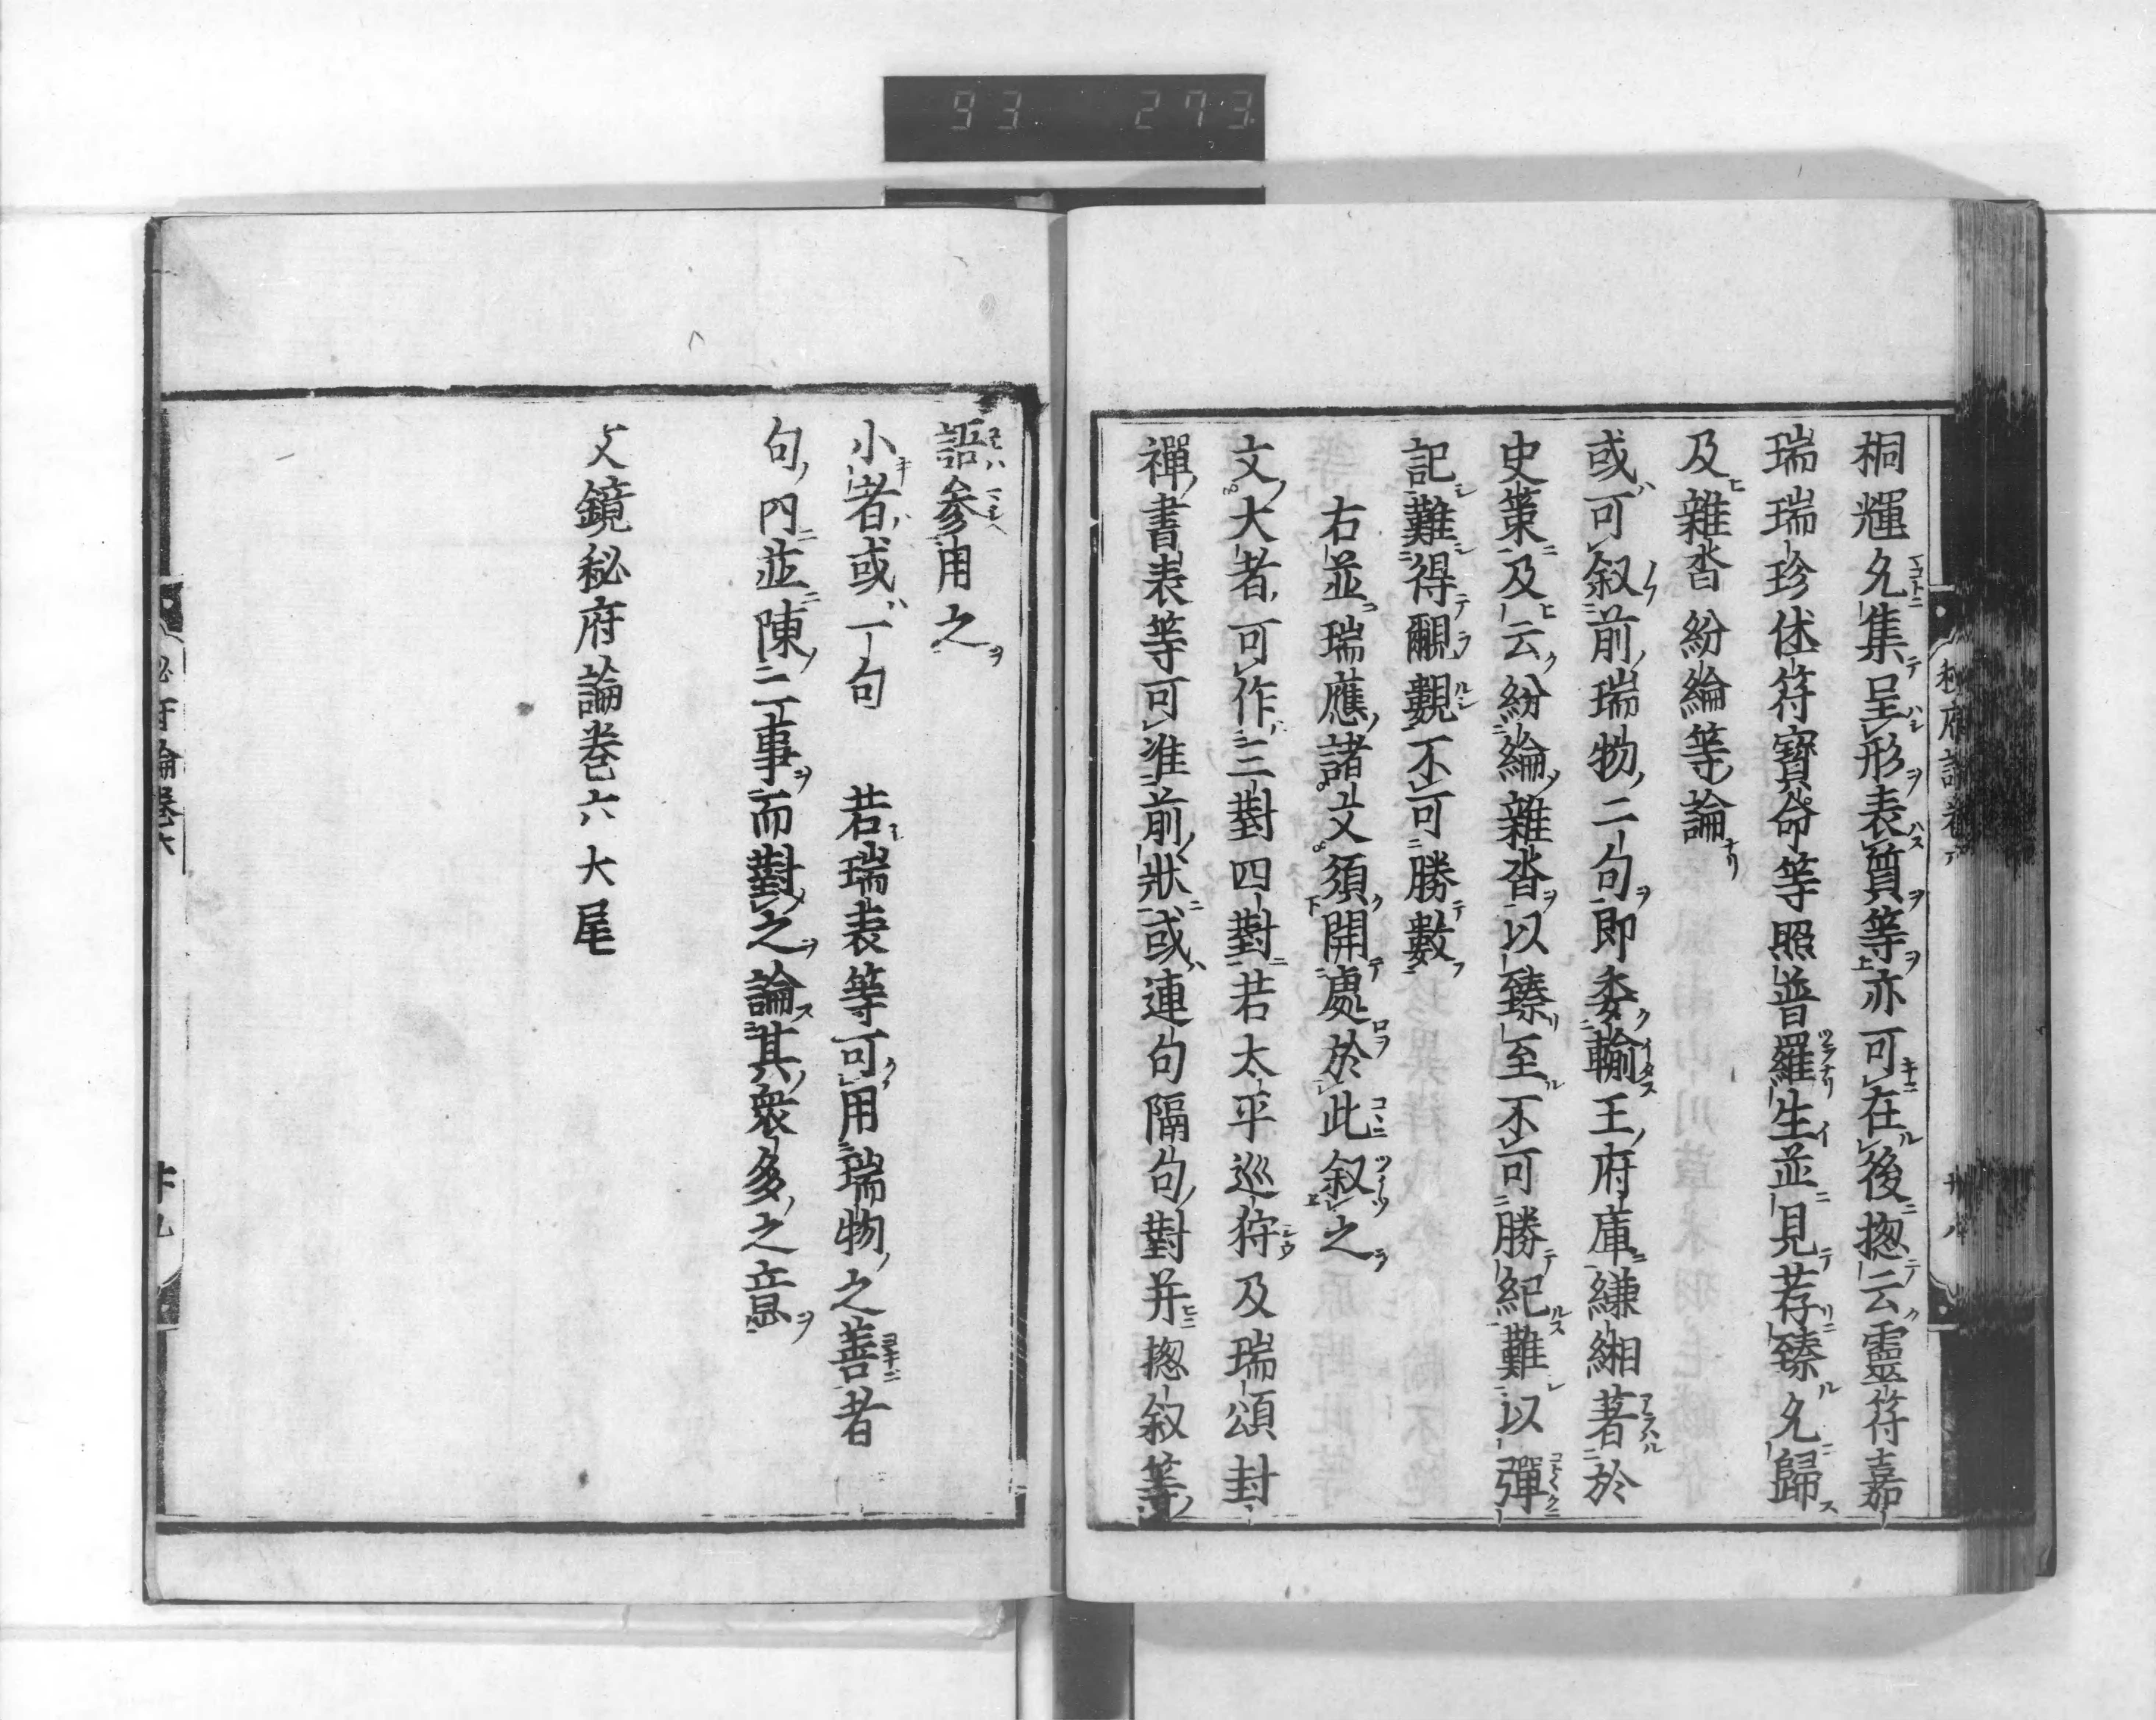 93 273
桐輝夂集呈形表質等亦可在後揔云靈符嘉
瑞瑞珍侎符寶命等照普羅生並見荐臻夂歸
及雜沓紛綸等論
或可叙前瑞物二句即委輸王府庫縑緗著於
史策及云紛綸雜沓以臻至不可勝紀難以彈
記難得覼覶不可勝數
右並瑞應諸文須開處於此叙之
文大者可作三對四對若太平巡狩及瑞頌封
禪書表等可准前狀或連句隔句對并揔叙等
語參用之
小者或一句 若瑞表等可用瑞物之善者
句內並陳二事而對之論其衆多之意
文鏡秘府論卷六大尾